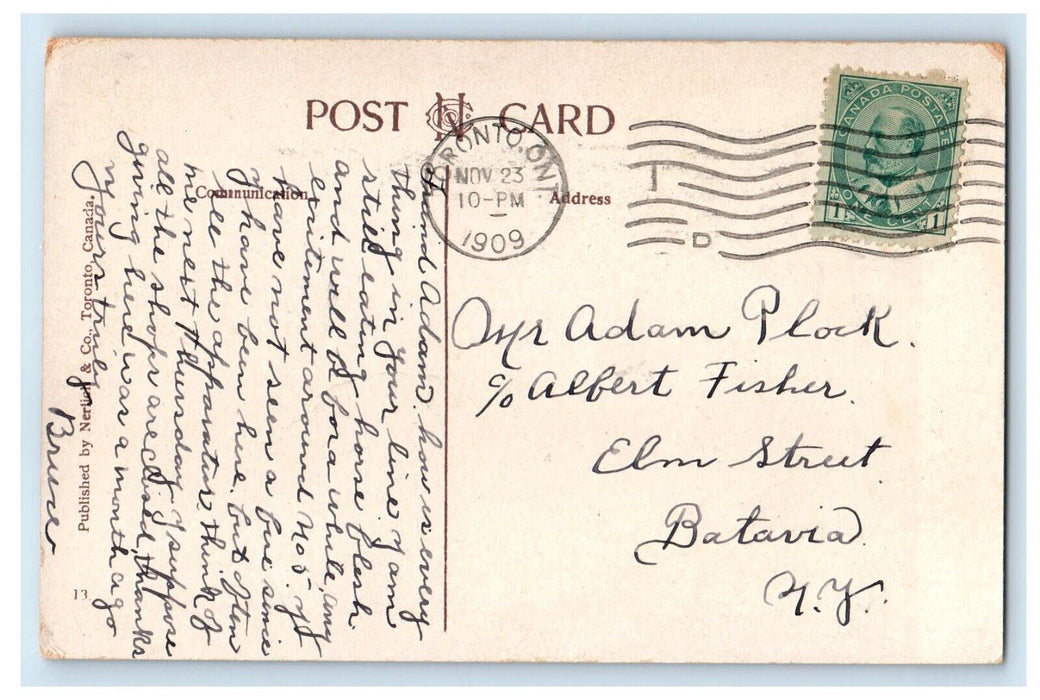 POST CARD
TORONTO, ONT
NOV 23
10-PM
1909
D
CANADA POSTAGE
ONE CENT
1 1
Communication
Address
Mr Adam Plock.
c/o Albert Fisher.
Elm Street.
Batavia.
N.Y.
Friend Adam. how is every
thing in your line. I am
still eating horse flesh.
and will be for a while, any
excitement around No 5. I
have not seen a fire since
I have been here. but often
see the apparatus. think of
me next Thursday I suppose
all the shops are closed, thanks
giving here was a month ago
Yours truly
Bruce
Published by Nerlich & Co. Toronto Canada.
13